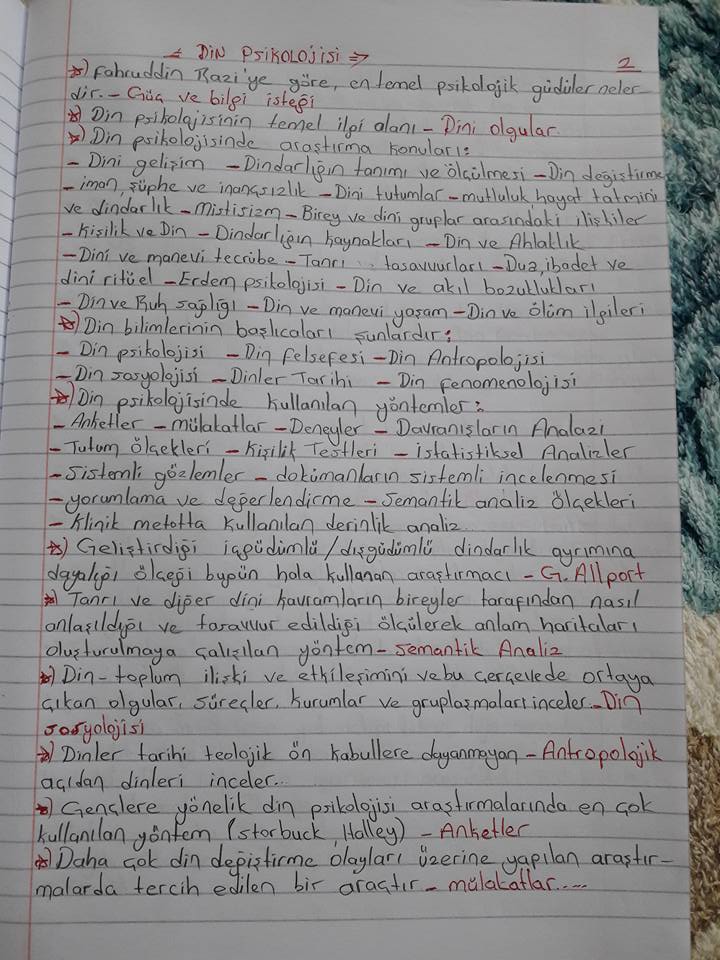 ← DİN PSİKOLOJİSİ → 2
☆) Fahruddin Razi'ye göre, en temel psikolojik güdüler neler
dir. – Güç ve bilgi isteği
☆) Din psikolojisinin temel ilgi alanı – Dini olgular.
☆) Din psikolojisinde araştırma konuları:
– Dini gelişim – Dindarlığın tanımı ve ölçülmesi – Din değiştirme
– iman, şüphe ve inançsızlık – Dini tutumlar – mutluluk hayat tatmini
ve dindarlık – Mistisizm – Birey ve dini gruplar arasındaki ilişkiler
– Kişilik ve Din – Dindarlığın kaynakları – Din ve Ahlaklık
– Dini ve manevi tecrübe – Tanrı tasavvurları – Dua, ibadet ve
dini ritüel – Erdem psikolojisi – Din ve akıl bozuklukları
– Din ve Ruh sağlığı – Din ve manevi yaşam – Din ve ölüm ilgileri
☆) Din bilimlerinin başlıcaları şunlardır:
– Din psikolojisi – Din felsefesi – Din Antropolojisi
– Din sosyolojisi – Dinler Tarihi – Din fenomenolojisi
☆) Din psikolojisinde kullanılan yöntemler:
– Anketler – mülakatlar – Deneyler – Davranışların Analazi
– Tutum ölçekleri – Kişilik Testleri – istatistiksel Analizler
– Sistemli gözlemler – dokümanların sistemli incelenmesi
– yorumlama ve değerlendirme – Semantik analiz ölçekleri
– Klinik metotta kullanılan derinlik analiz..
☆) Geliştirdiği içgüdümlü/dışgüdümlü dindarlık ayrımına
dayalığı ölçeği bugün hala kullanan araştırmacı – G. Allport
☆) Tanrı ve diğer dini kavramların bireyler tarafından nasıl
anlaşıldığı ve tasavvur edildiği ölçülerek anlam haritaları
oluşturulmaya çalışılan yöntem – Semantik Analiz
☆) Din – toplum ilişki ve etkileşimini ve bu çerçevede ortaya
çıkan olgular, süreçler, kurumlar ve gruplaşmaları inceler. – Din
sosyolojisi
☆) Dinler tarihi teolojik ön kabullere dayanmayan – Antropolojik
açıdan dinleri inceler...
☆) Gençlere yönelik din psikolojisi araştırmalarında en çok
kullanılan yöntem (Storbuck, Halley) – Anketler
☆) Daha çok din değiştirme olayları üzerine yapılan araştır–
malarda tercih edilen bir araçtır – mülakatlar.....